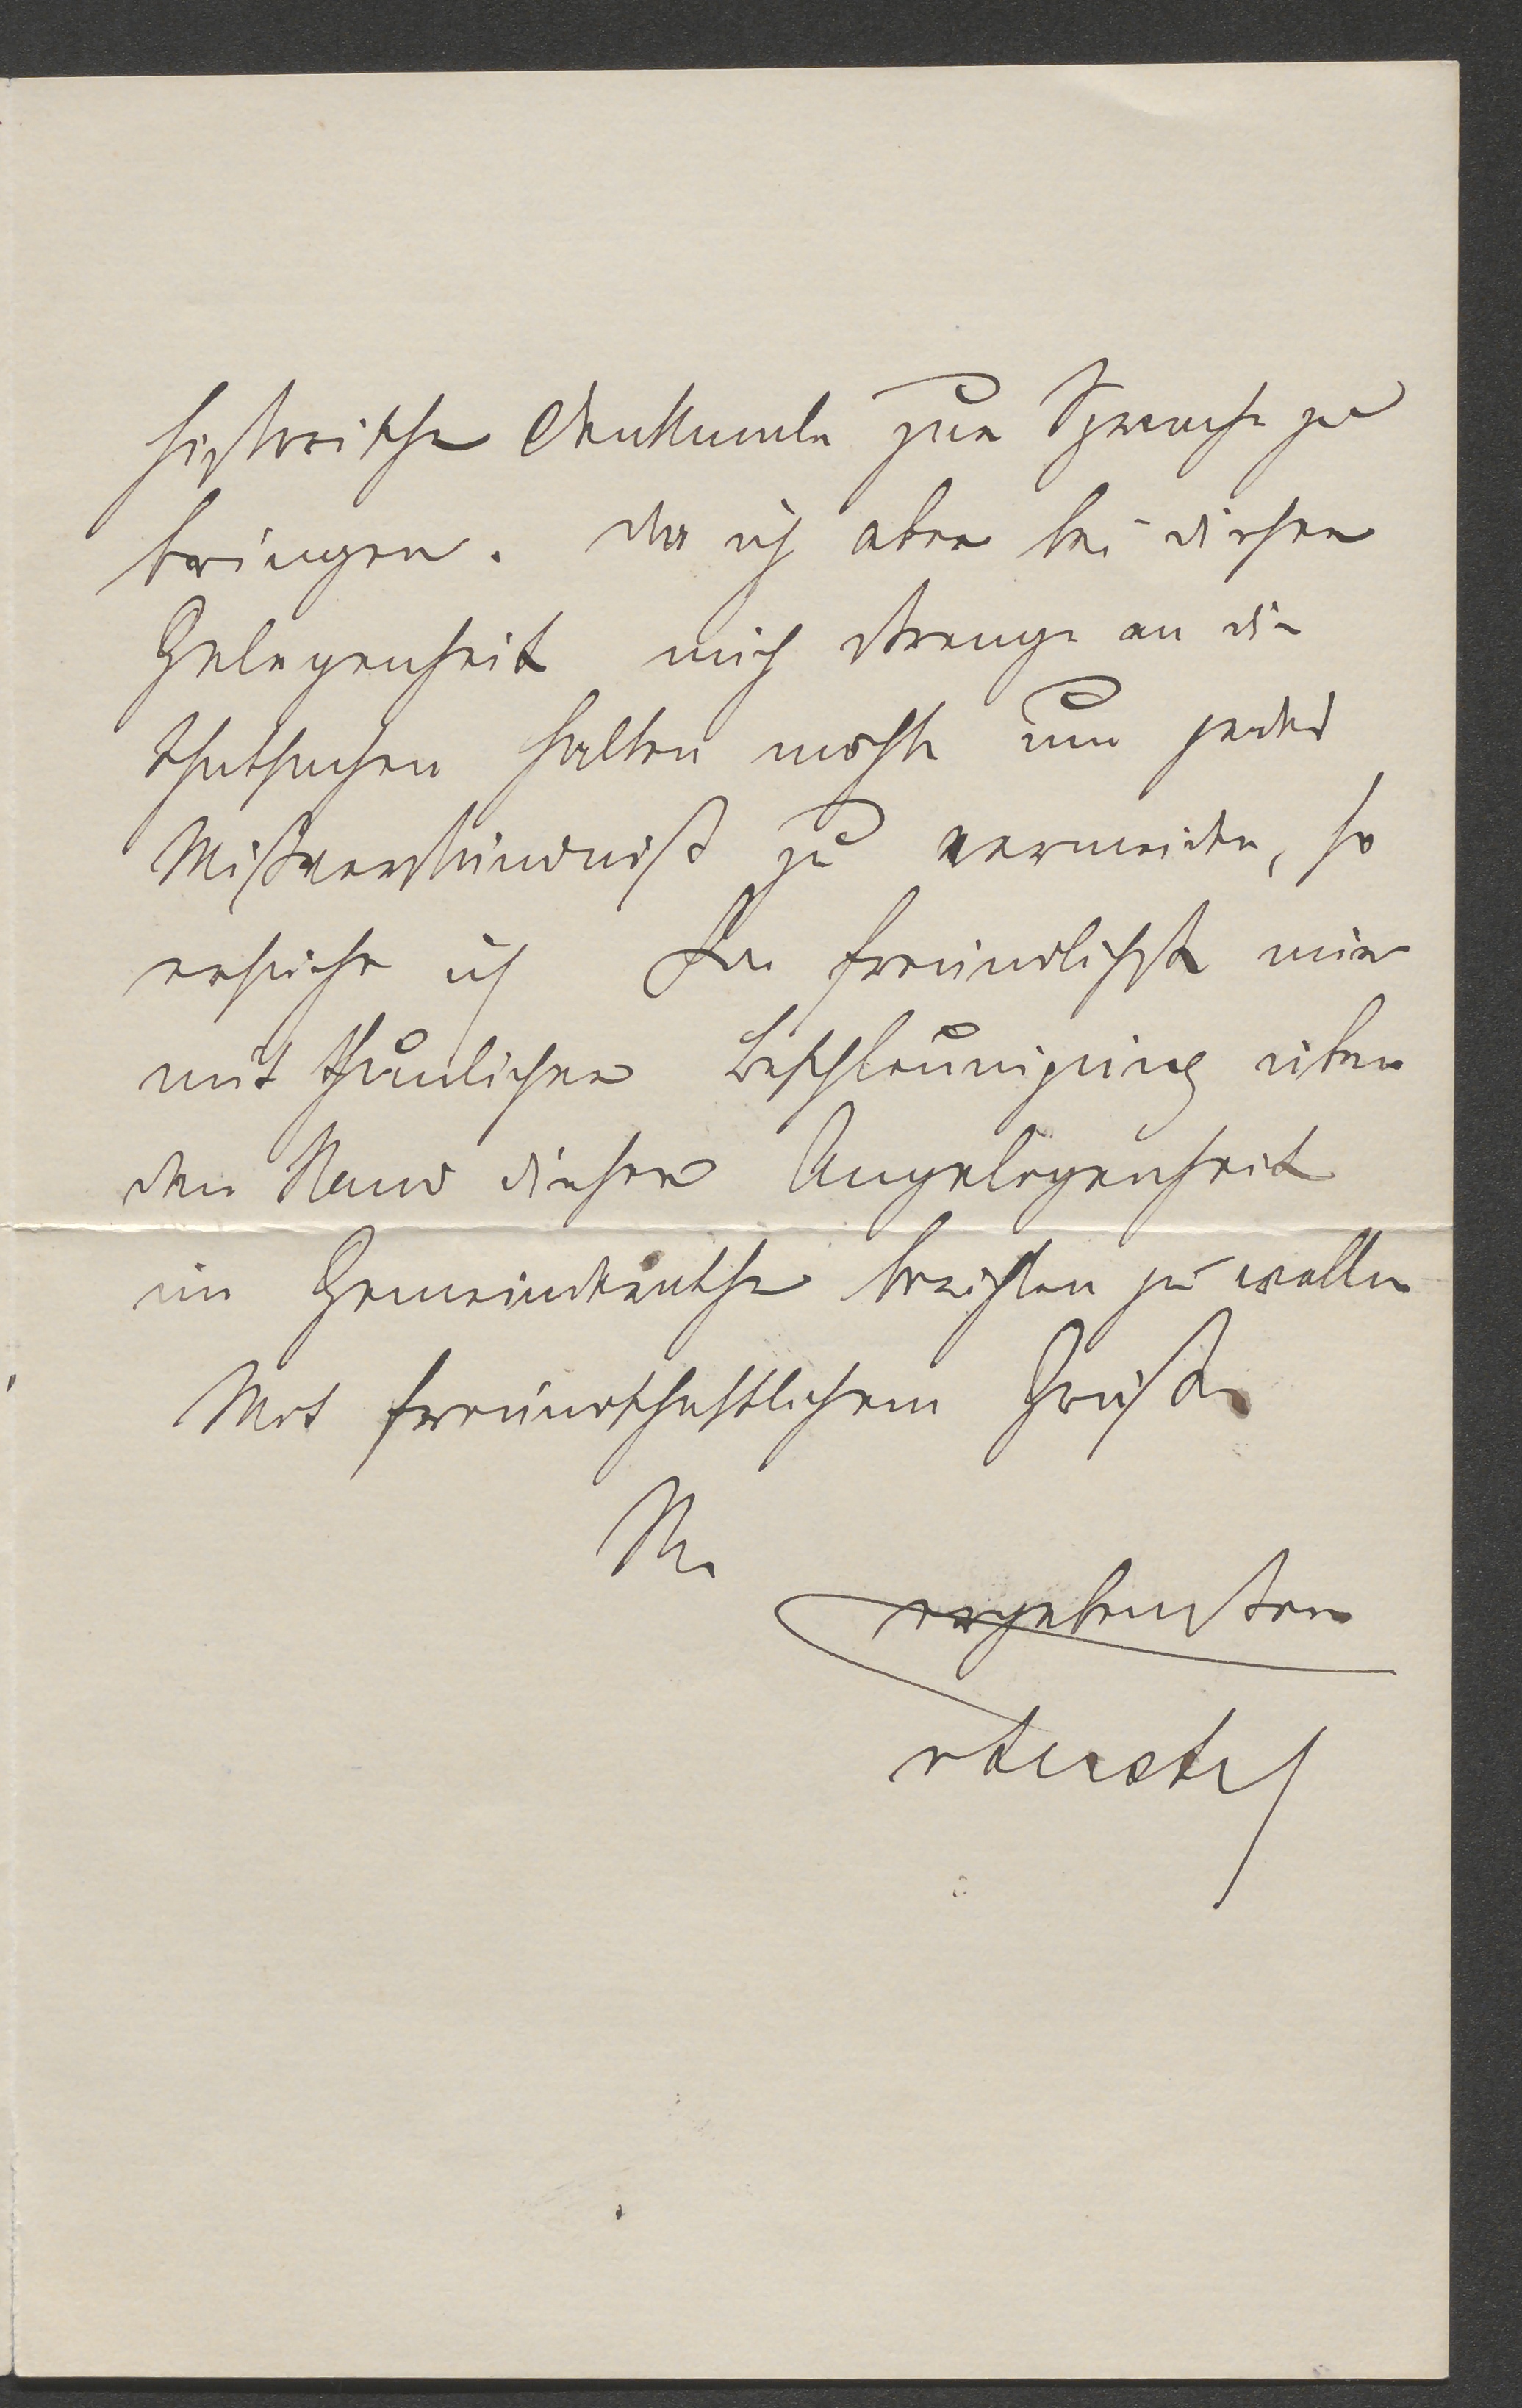 historische Denkmale zur Sprache zu
bringen. Da ich aber bei dieser
Gelegenheit mich strenge an die
Thatsachen halten möchte um jedes
Mißverständniß zu vermeiden, so
ersuche ich Sie freundlichst mir
mit thunlicher Beschleunigung über
den Stand dieser Angelegenheit
im Gemeinderathe berichten zu wollen
Mit freundschaftlichem Gruße
Ihr
ergebenster